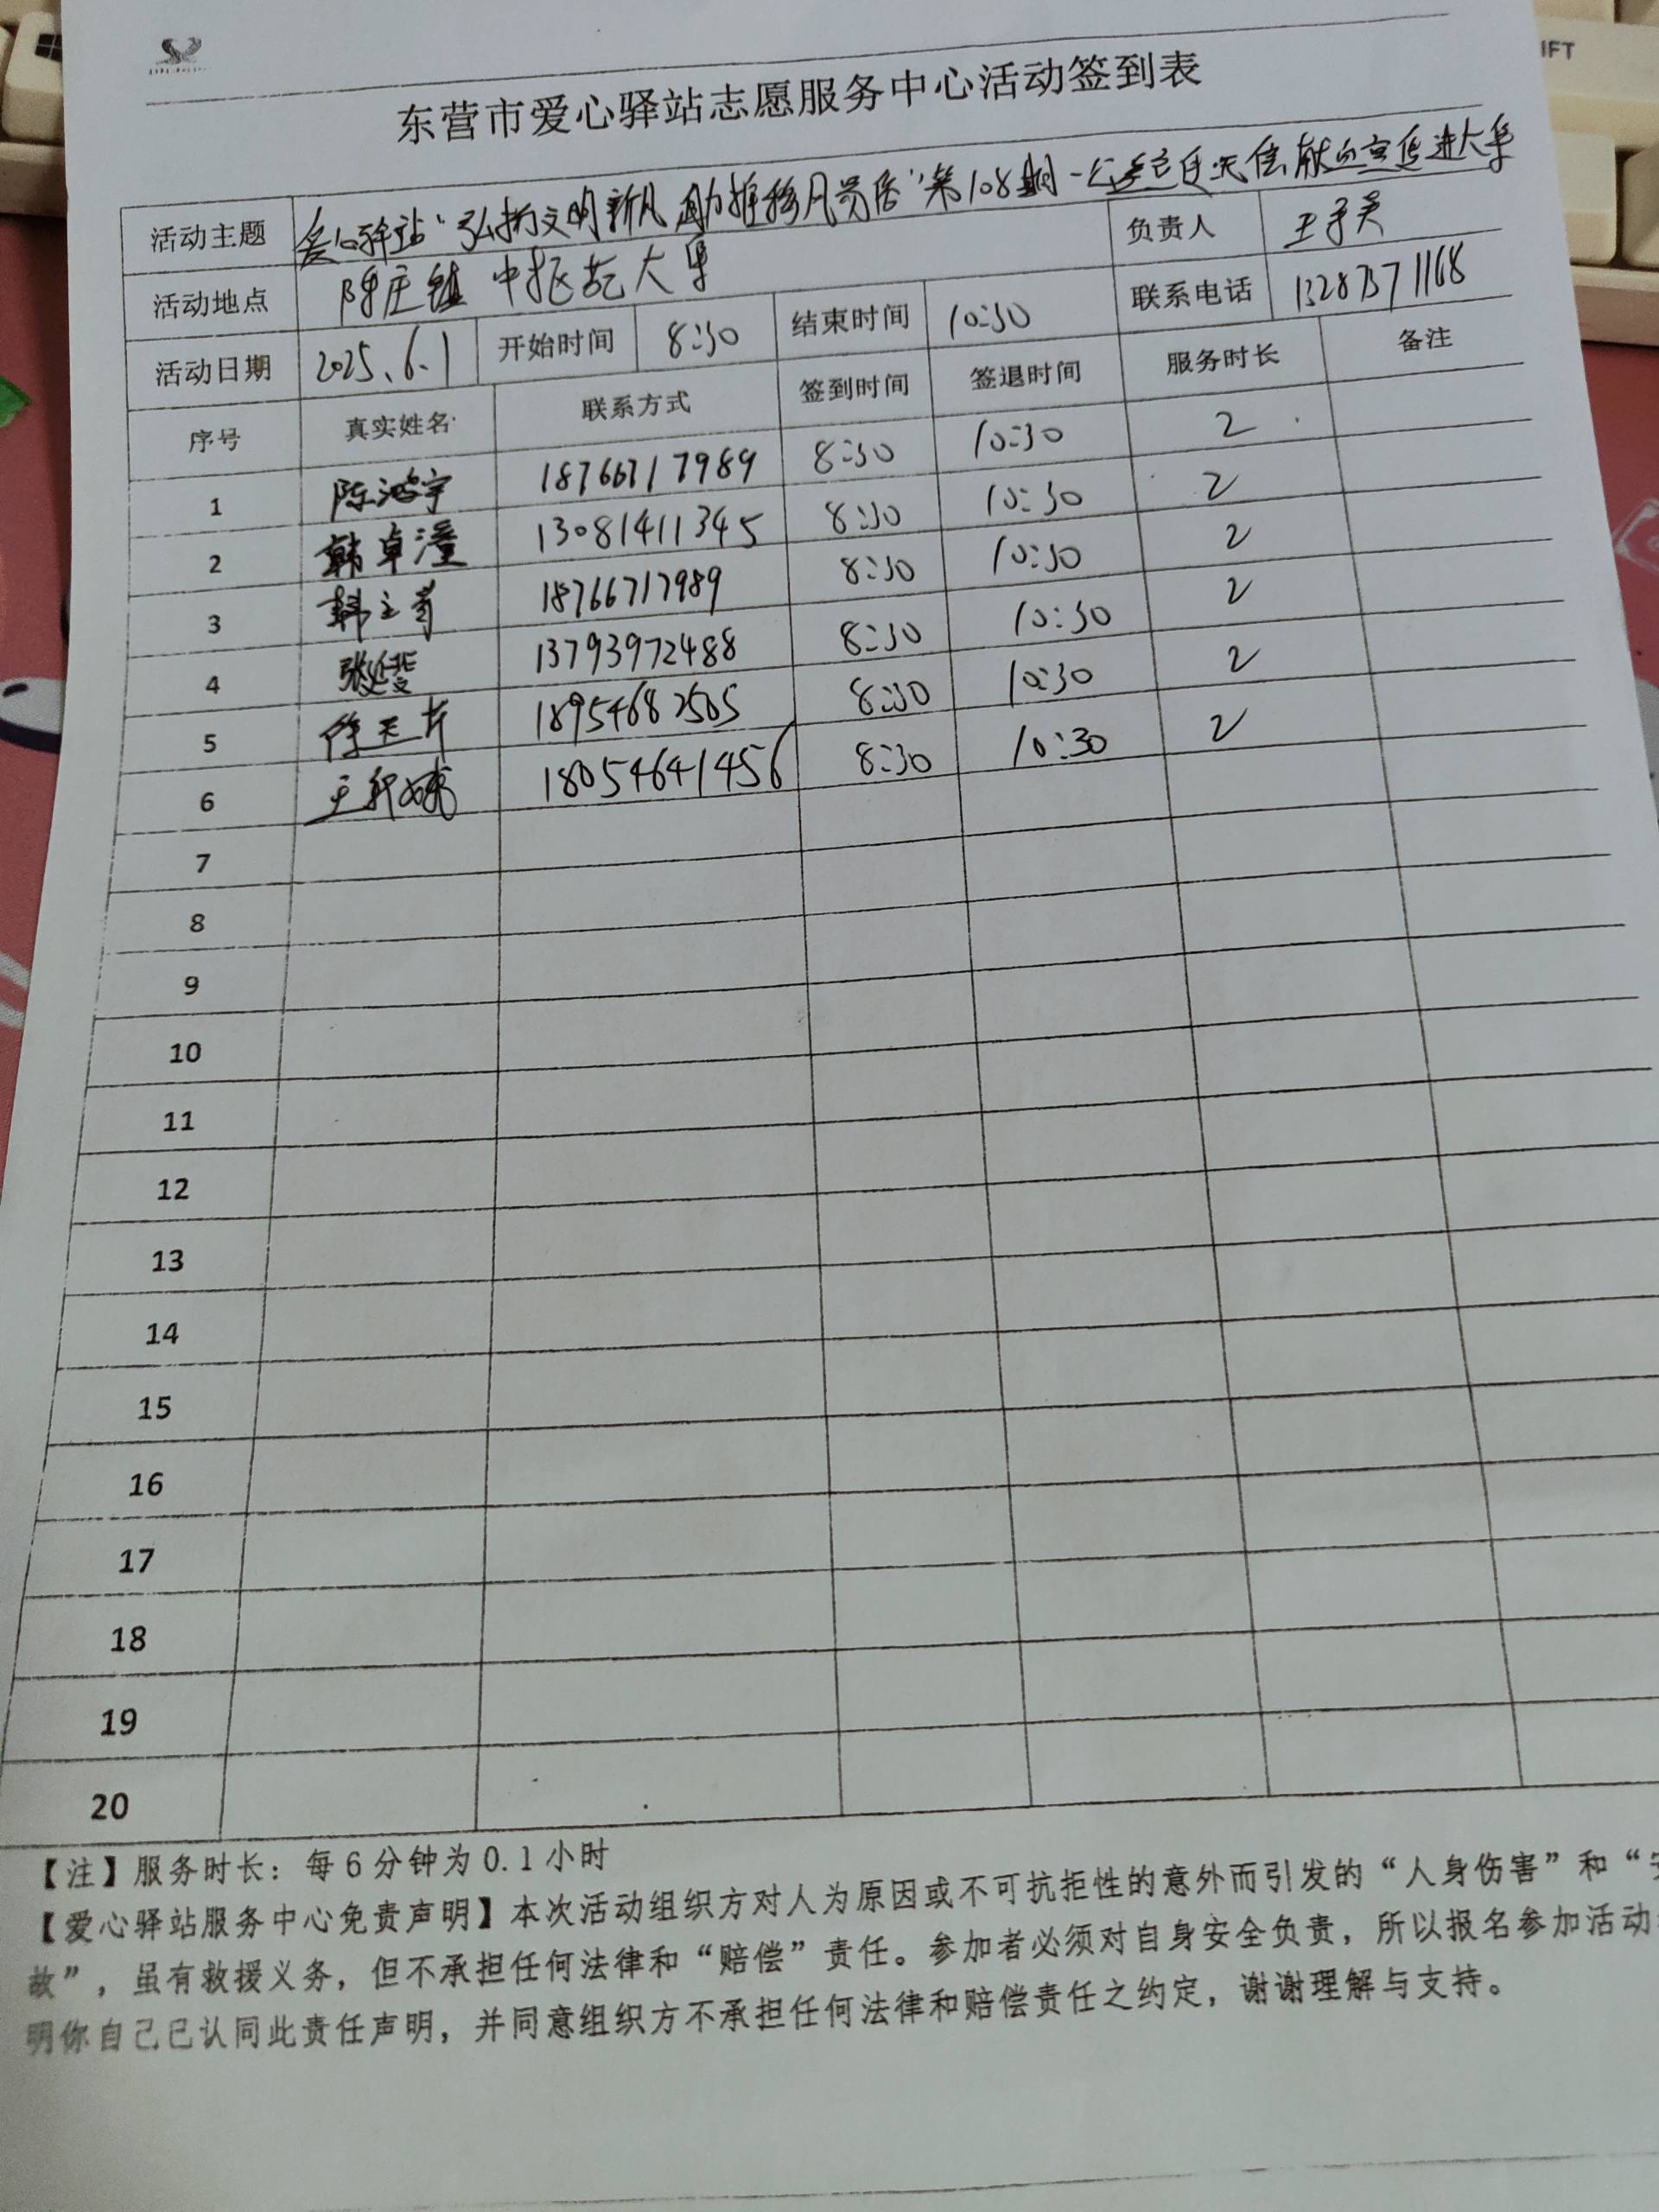 东营市爱心驿站志愿服务中心活动签到表
活动主题 爱心驿站"弘扬文明新风 助推移风易俗"第108期 献血宣传进大集 负责人 王
活动地点 陈庄镇 中 大集 联系电话 13287371168
活动日期 2025.6.1 开始时间 8:30 结束时间 10:30
序号 真实姓名 联系方式 签到时间 签退时间 服务时长 备注
1 陈鸿宇 18766717989 8:30 10:30 2
2 韩卓潼 13081411345 8:30 10:30 2
3 韩 18766717989 8:30 10:30 2
4 张 13793972488 8:30 10:30 2
5 徐 18954682505 8:30 10:30 2
6 王 18054641456 8:30 10:30 2
7
8
9
10
11
12
13
14
15
16
17
18
19
20
【注】服务时长：每6分钟为0.1小时
【爱心驿站服务中心免责声明】本次活动组织方对人为原因或不可抗拒性的意外而引发的“人身伤害”和“
故”，虽有救援义务，但不承担任何法律和“赔偿”责任。参加者必须对自身安全负责，所以报名参加活动
明你自己已认同此责任声明，并同意组织方不承担任何法律和赔偿责任之约定，谢谢理解与支持。
IFT